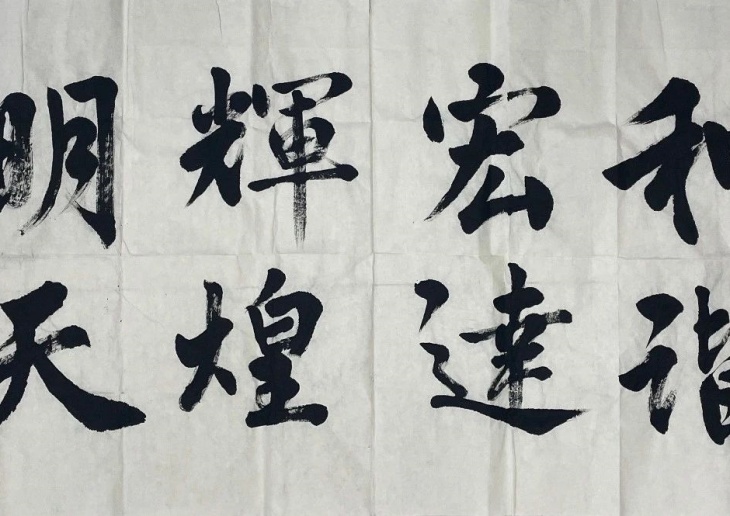 和谐
宏達
輝煌
明天